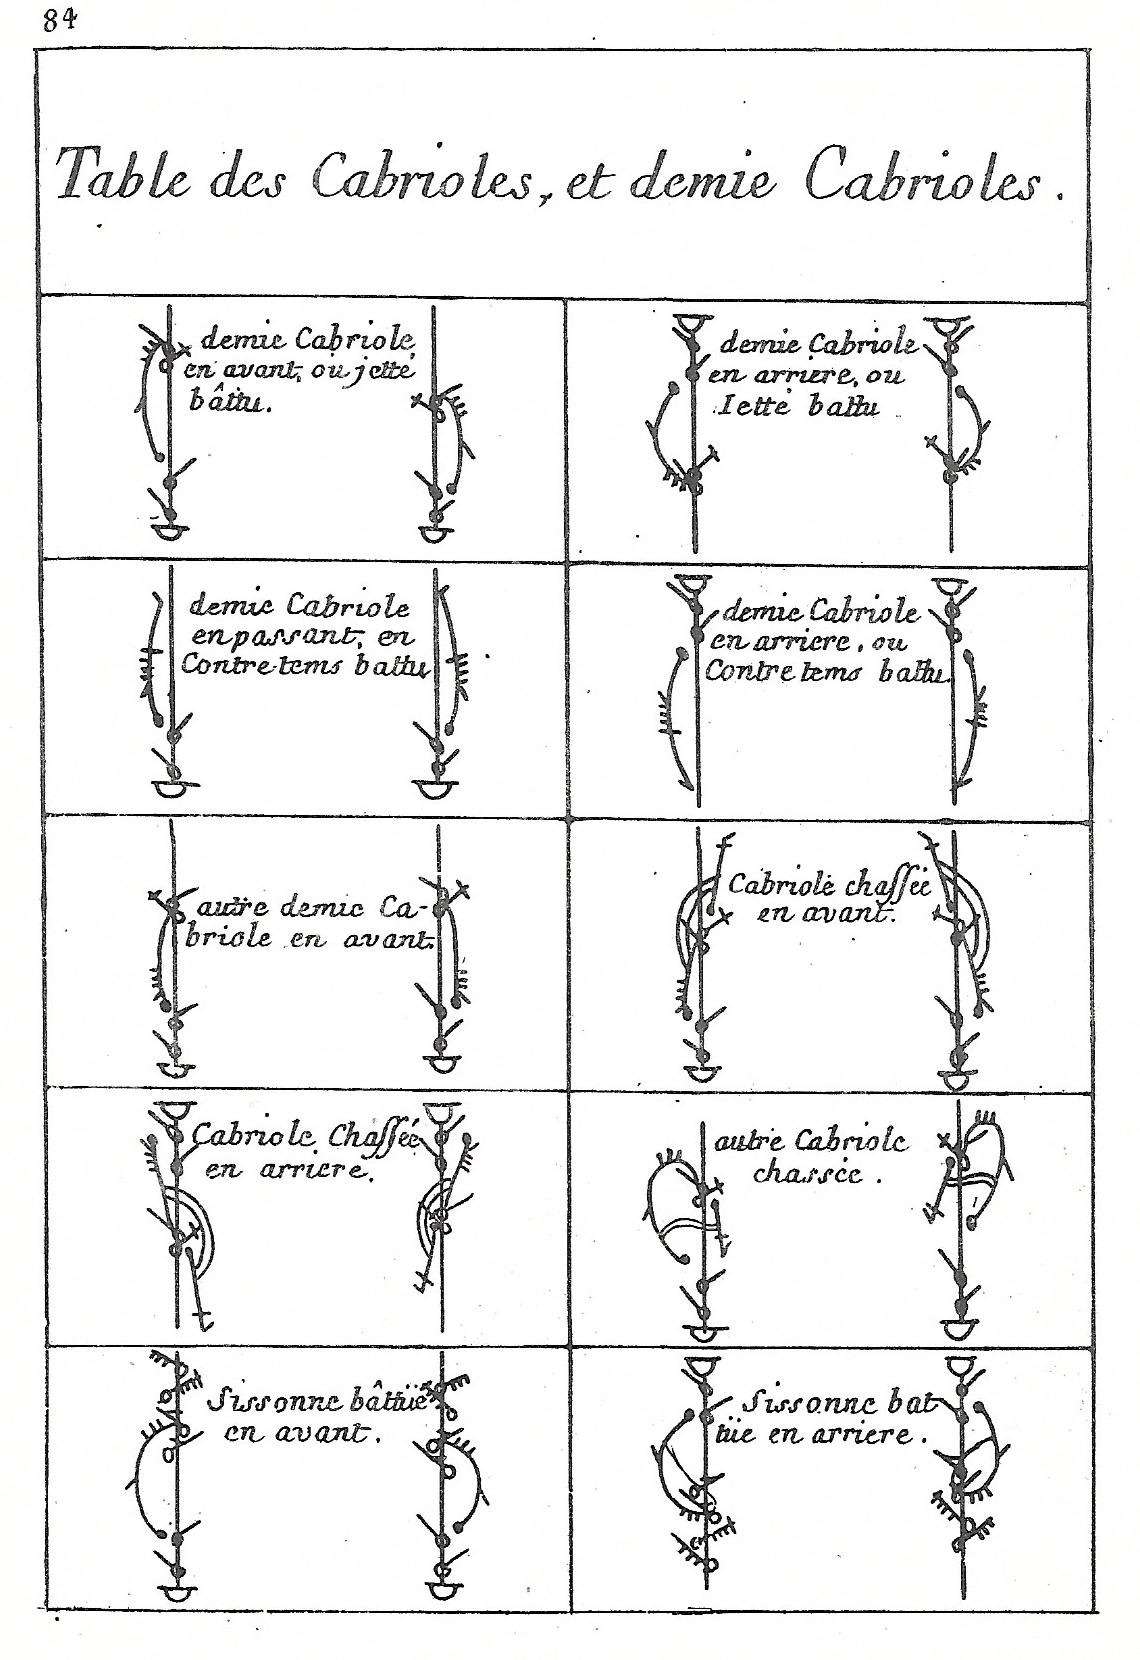 84
Table des Cabrioles, et demie Cabrioles.
demie Cabriole
en avant, ou jetté
bâttu.
demie Cabriole
en arriere, ou
Ietté battu
demie Cabriole
en passant, en
Contretems battu
demie Cabriole
en arriere, ou
Contretems battu
autre demie Ca-
briole en avant.
Cabriole chassée
en avant.
Cabriole Chassée
en arriere.
autre Cabriole
chassée.
Sissonne bâttüe
en avant.
Sissonne bat
tüe en arriere.